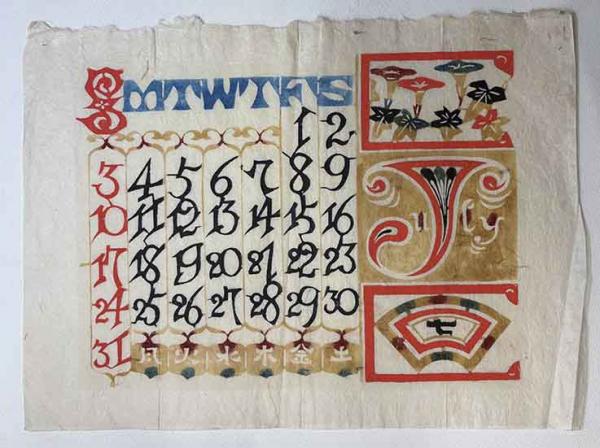 S M T W T F S
1 2
3 4 5 6 7 8 9
10 11 12 13 14 15 16
17 18 19 20 21 22 23
24 25 26 27 28 29 30
31 月 火 水 木 金 土
July
七